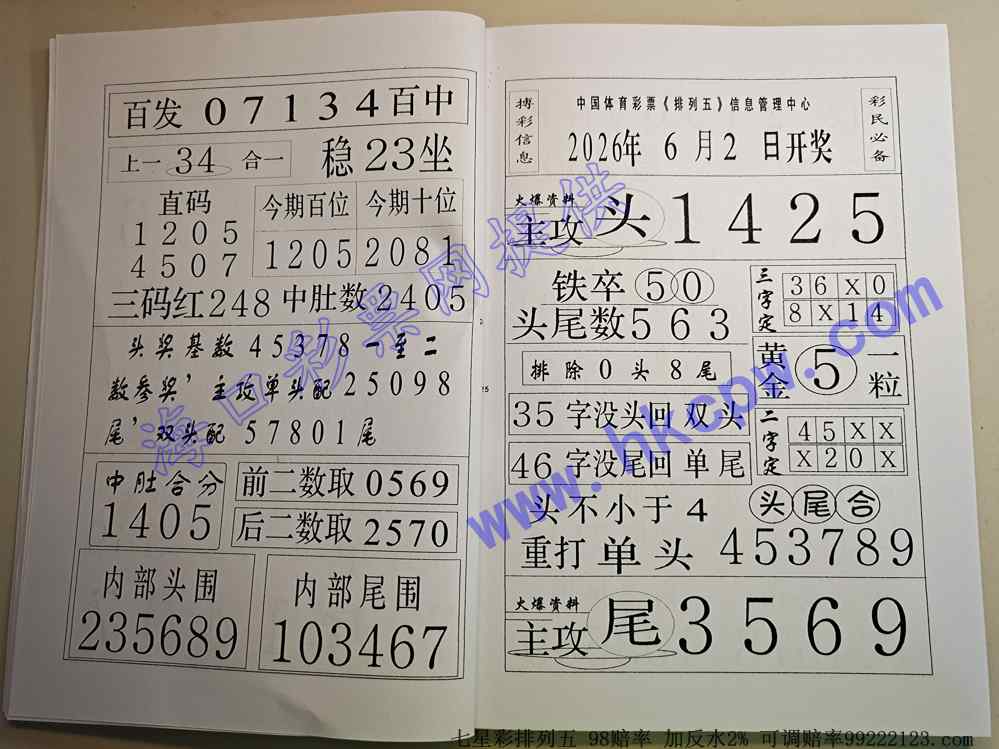 百发 07134 百中
上一 34 合一 稳23坐
直码
1205
4507
今期百位 今期十位
1205 2081
三码红248 中肚数2405
头奖基数45378一至二
数参奖’主攻单头配25098
尾’双头配57801尾
中肚合分
1405
前二数取 0569
后二数取 2570
内部头围
235689
内部尾围
103467
搏彩信息
中国体育彩票《排列五》信息管理中心
2026年 6 月2 日开奖
彩民必备
火爆资料
主攻 头 1425
铁卒 50
头尾数563
三字定
36X0
8X14
排除0头8尾
黄金 5 一粒
35字没头回 双头
46字没尾回 单尾
二字定
45XX
X20X
头不小于4
头尾合
重打 单头 453789
火爆资料
主攻 尾 3569
海口彩票网提供
www.hkcpw.com
七星彩排列五 98赔率 加反水2% 可调赔率99222123.com